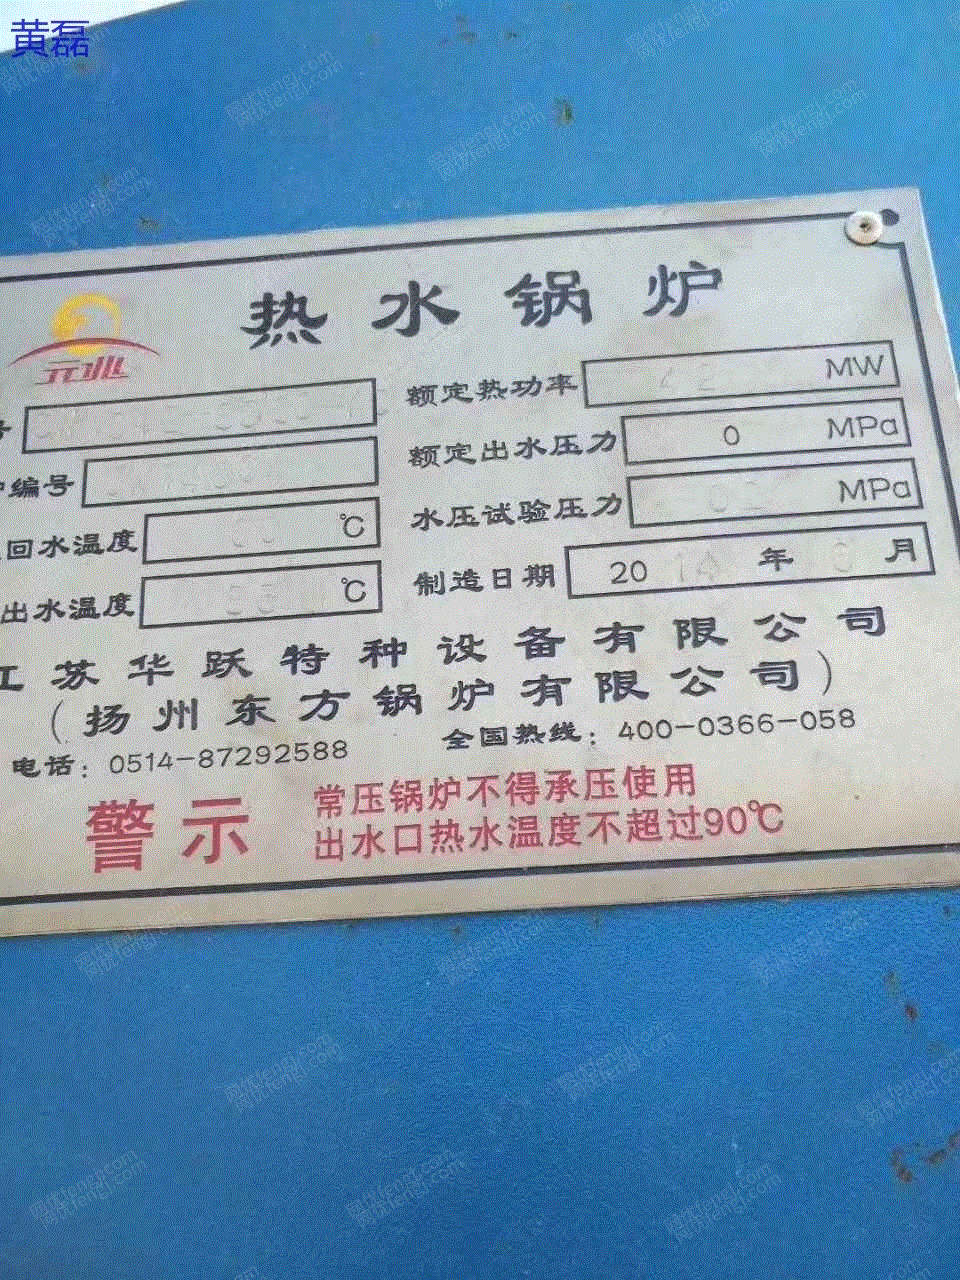 黄磊
热水锅炉
号
额定热功率 MW
额定出水压力 0 MPa
炉编号
水压试验压力 MPa
回水温度 ℃
制造日期 2014年 月
出水温度 ℃
江苏华跃特种设备有限公司
（扬州东方锅炉有限公司）
电话：0514-87292588 全国热线：400-0366-058
警示 常压锅炉不得承压使用
出水口热水温度不超过90℃